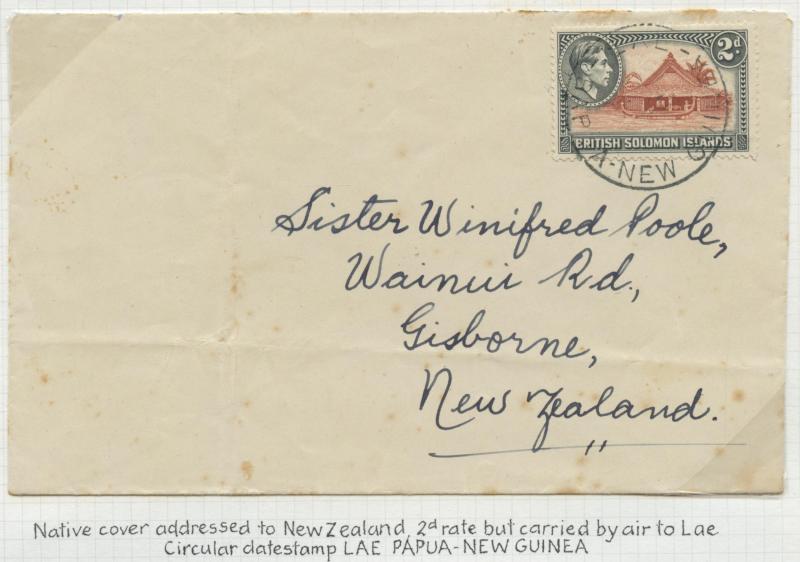 2d
BRITISH SOLOMON ISLANDS
A-NEW G
Sister Winifred Poole,
Wainui Rd.,
Gisborne,
New Zealand.
Native cover addressed to New Zealand, 2d rate but carried by air to Lae
Circular datestamp LAE PAPUA-NEW GUINEA